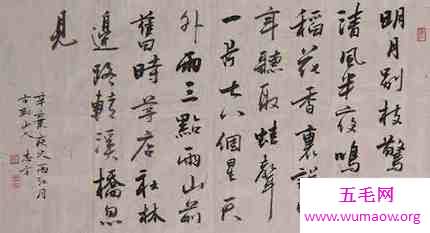 明月別枝驚
清風半夜鳴
稻花香裏說
年聽取蛙聲
一片七八個星天
外兩三點雨山前
舊時茅店社林
邊路轉溪橋忽
見
西江月
五毛网
www.wumaow.org